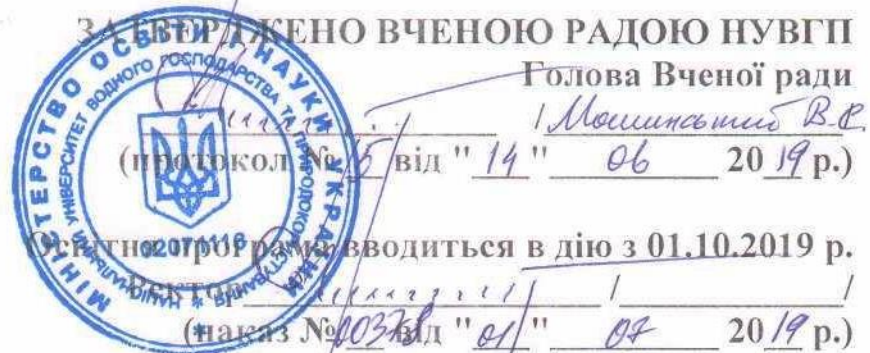 ЗАТВЕРДЖЕНО ВЧЕНОЮ РАДОЮ НУВГП
Голова Вченої ради
/ Мошинський В.С.
(протокол № 5 від "14" 06 2019 р.)
Освітня програма вводиться в дію з 01.10.2019 р.
Ректор / /
(наказ № від "01" 07 2019 р.)
МІНІСТЕРСТВО ОСВІТИ І НАУКИ УКРАЇНИ
НАЦІОНАЛЬНИЙ УНІВЕРСИТЕТ ВОДНОГО ГОСПОДАРСТВА ТА ПРИРОДОКОРИСТУВАННЯ
02071116